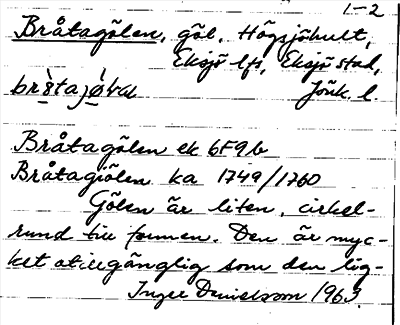 1-2
Bråtagölen, göl, Högsjöhult,
Eksjö lfs, Eksjö stad,
Jönk. l.
Bråtagölen ek 6F9b
Bråtagiölen ka 1749/1760
Gölen är liten, cirkel-
rund till formen. Den är myc-
ket otillgänglig som den lig-
Inger Danielsson 1963.